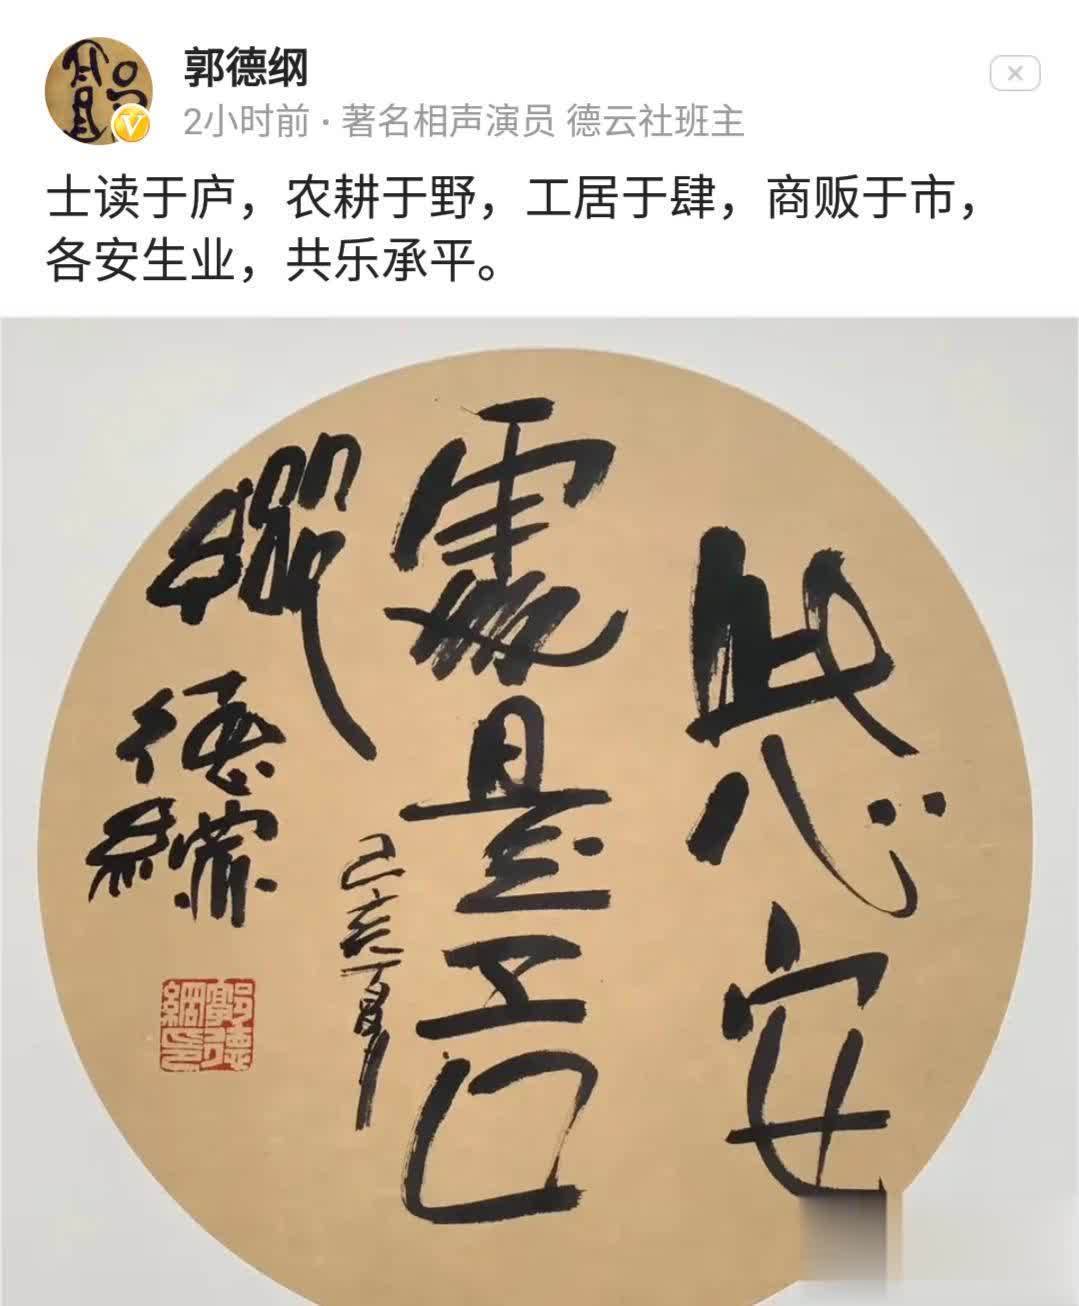 郭德纲
2小时前 · 著名相声演员 德云社班主
士读于庐，农耕于野，工居于肆，商贩于市，
各安生业，共乐承平。
此心安
處是吾
鄉
己亥夏
德綱
郭德綱印